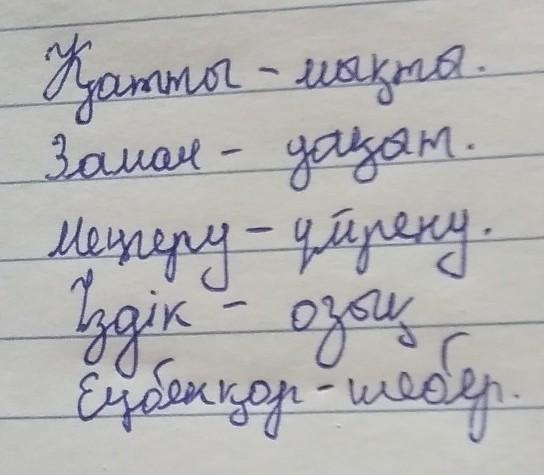 Қатты - мықты.
Заман - уақыт.
Меңгеру - үйрену.
Үздік - озық
Еңбекқор - шебер.